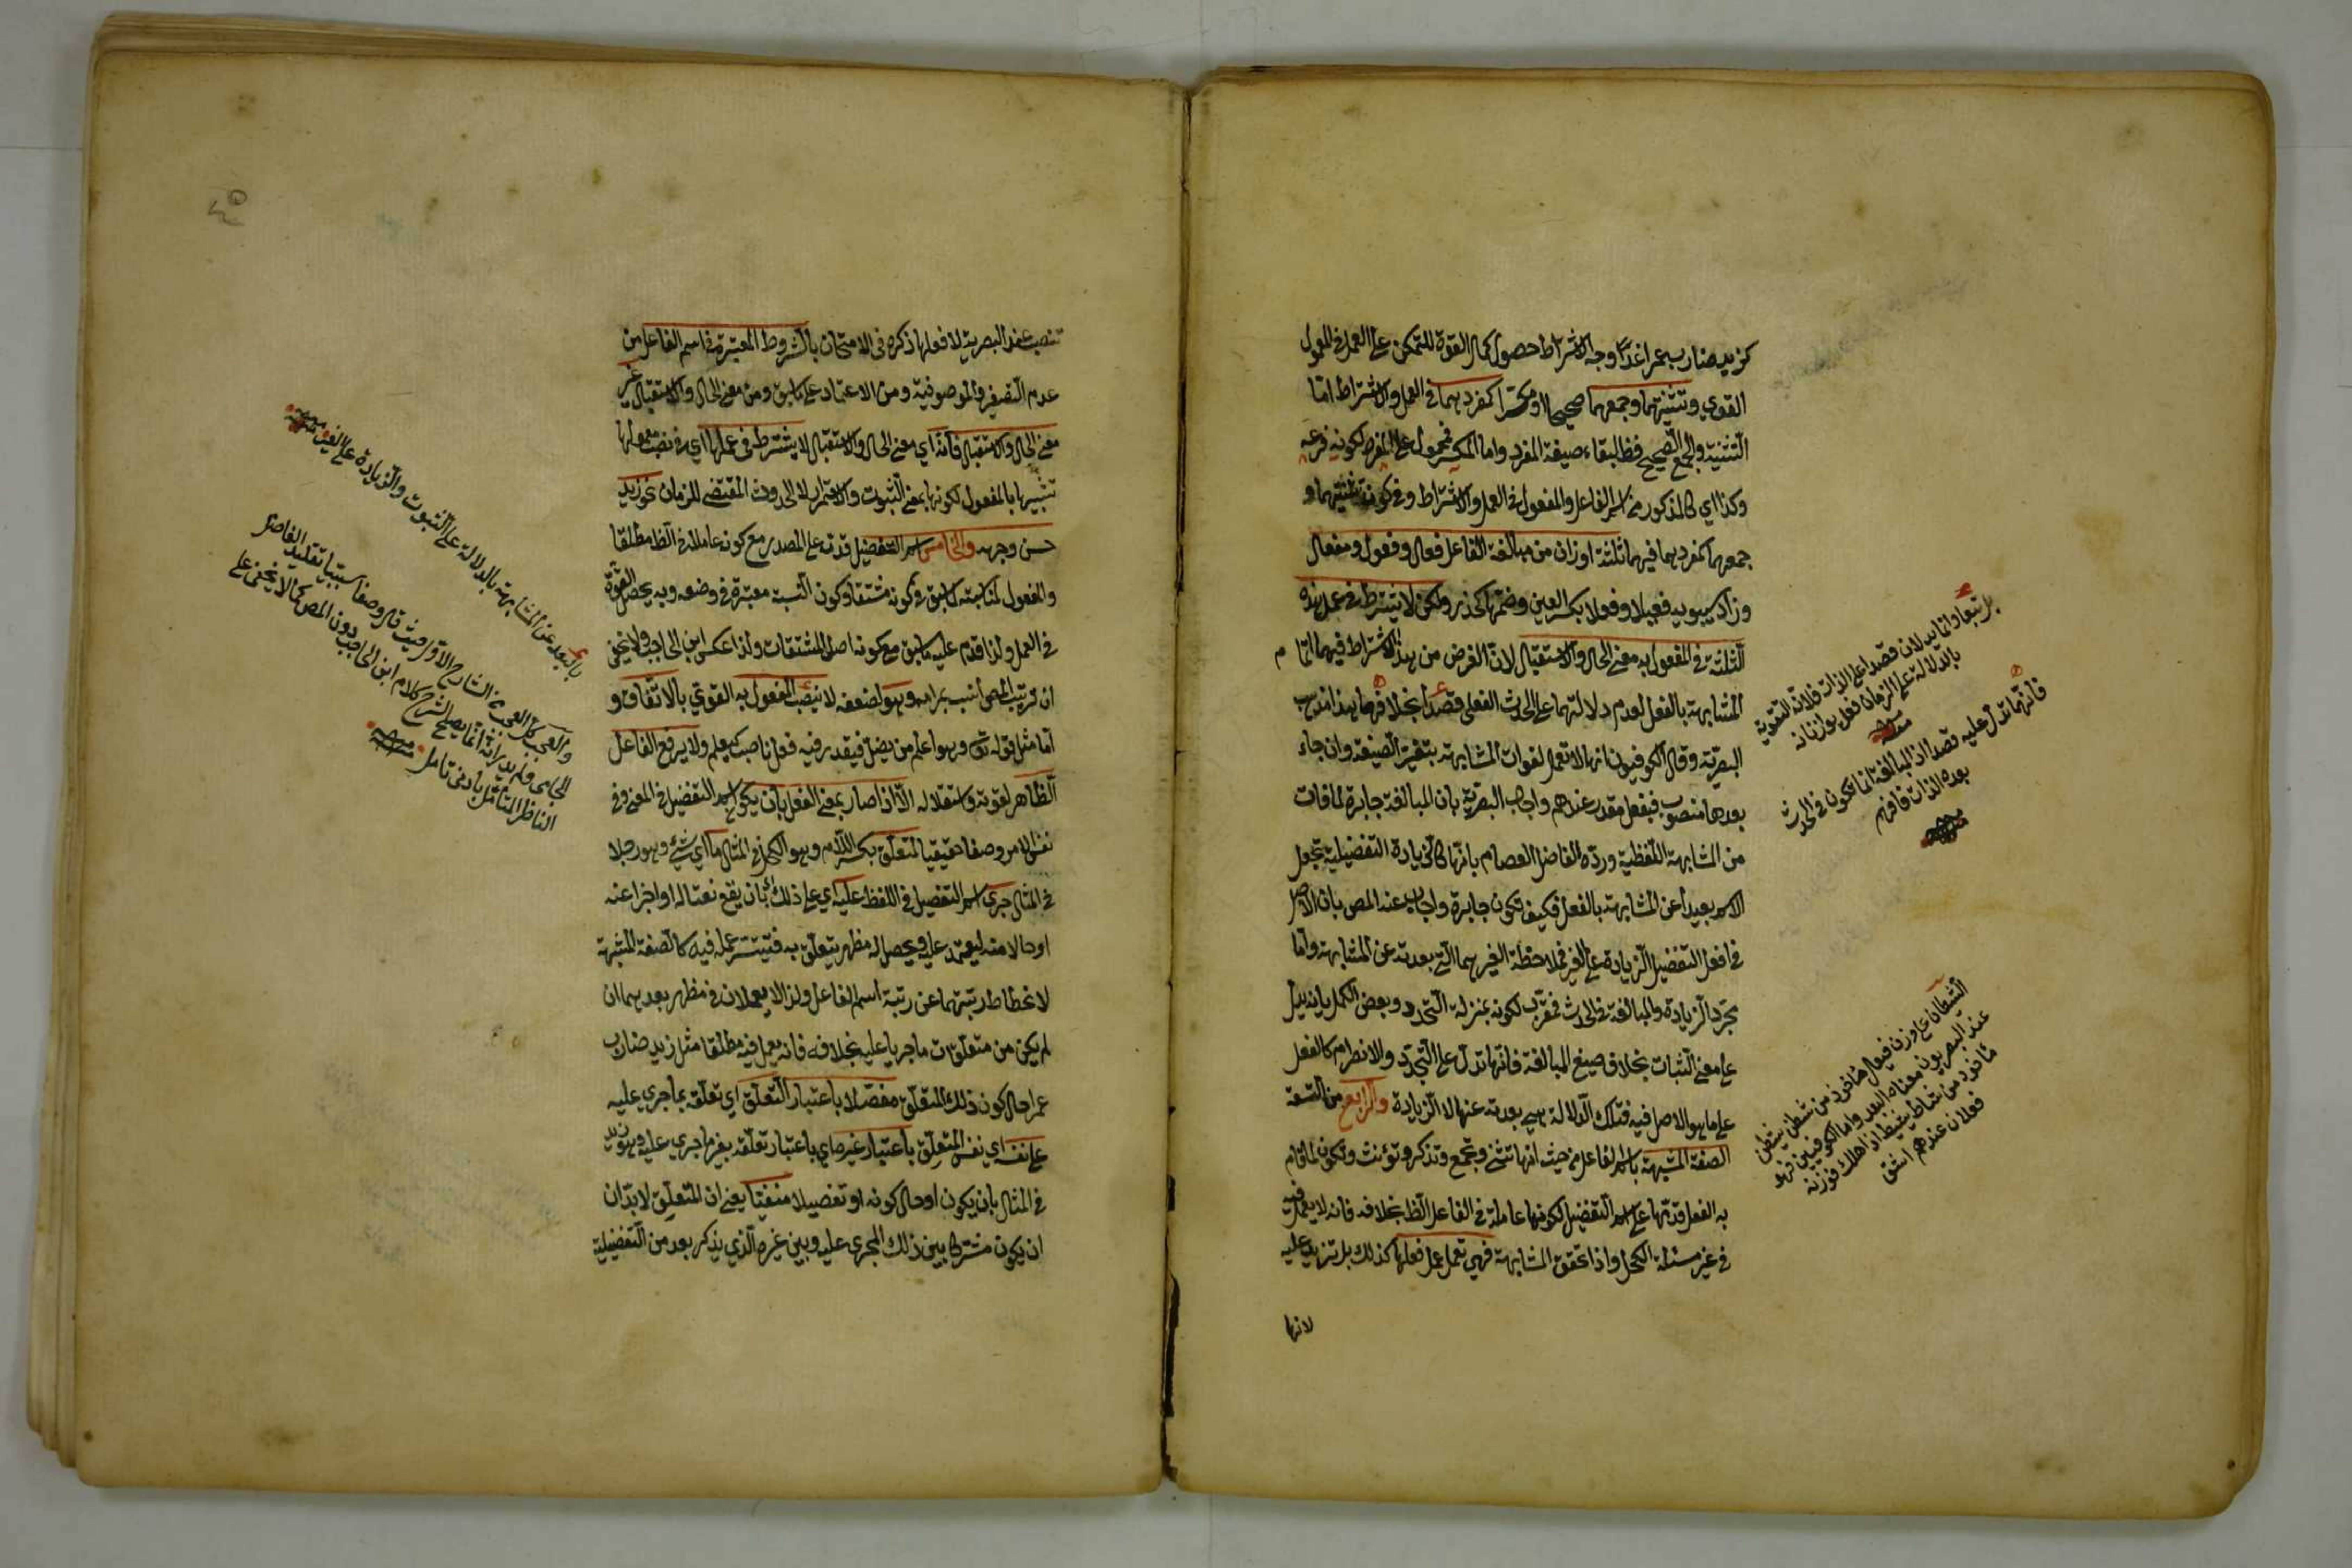 كزيد ضارب عمرا غدا وجه الاشتراط حصول كمال القوة للتمكن على العمل في المعمول
القوي وتثنيتهما وجمعهما صحيحا او مكسرا كمفردهما في العمل والاشتراط اما
التثنية والجمع الصحيح فظ لبقاء صيغة المفرد واما المكسر فمحمول على المفرد لكونه فرعه
وكذا اي كالمذكور من اسم الفاعل والمفعول في العمل والاشتراط وفي كون تثنيتهما و
جمعهما كمفردهما فيهما ثلثة اوزان من مبالغة الفاعل فعال وفعول ومفعال
وزاد سيبويه فعيلا وفعلا بكسر العين وضمها كحذر ولكن لا يشترط في عمل هذه
الثلثة في المفعول به معنى الحال والاستقبال لان الغرض من هذا الاشتراط فيهما اتمام
المشابهة بالفعل لعدم دلالتهما على الحدث الفعلي قصدا بخلافها هذا مذهب
البصرية وقال الكوفيون انها لا تعمل لفوات المشابهة بتغير الصيغة وان جاء
بعدها منصوب فبفعل مقدر عندهم واجاب البصرية بان المبالغة جابرة لما فات
من المشابهة اللفظية ورده الفاضل العصام بانها كالزيادة التفضيلية تجعل
الاسم بعيدا عن المشابهة بالفعل فكيف تكون جابرة واجاب عنه المص بان الاصل
في افعل التفضيل الزيادة على الغير فملاحظة الغير هما التي بعدته عن المشابهة واما
مجرد الزيادة والمبالغة في الحدث فمقرب لكونه بمنزلة التجدد وبعض الكمل بانه يدل
على معنى الثبات بخلاف صيغ المبالغة فانها تدل على التجدد والانصرام كالفعل
على ما هو الاصل فيه فتلك الدلالة هي بعدته عنها لا الزيادة والرابع من التسعة
الصفة المشبهة باسم الفاعل من حيث انها تثنى وتجمع وتذكر وتؤنث وتكون لما قام
به الفعل قدمها على اسم التفضيل لكونها عاملة في الفاعل الظ بخلافه فانه لا يعمل فيه
في غير مسئلة الكحل واذا تحقق المشابهة فهي تعمل عمل فعلها كذلك بل تزيد عليه
لانها
بل تبعا وانما يدلان قصدا على الذات فلان التقوية
بالدلالة على الزمان فعل بوازنانه
منه
فانها تدل عليه قصدا اذ المبالغة انما تكون في الحدث
بعده الذات فافهم
منه
الشيطان على وزن فيعال مأخوذ من شطن يشطن
عند البصريون معناه البعد واما الكوفيين فهو
مأخوذ من شاط يشيط اذ اهلك فوزنه
فعلان عندهم اشتق
تنصب عند البصرية لا فعلها ذكره في الامتحان بالشروط المعتبرة في اسم الفاعل من
عدم التصغير والموصوفية ومن الاعتماد على ما سبق ومن معنى الحال والاستقبال غير
معنى الحال والاستقبال فانه اي معنى الحال والاستقبال لا يشترط في عملها اي في نصب معمولها
تشبيها بالمفعول لكونها بمعنى الثبوت والاستمرار لا الحدوث المقتضي للزمان نحو زيد
حسن وجهه والخامس اسم التفضيل قدمه على المصدر مع كونه عاملا في الظ مطلقا
والمفعول لمناسبته لما سبق في كونه مشتقا وكون النسبة معتبرة في وضعه وبه يحصل القوة
في العمل ولذا قدم عليه ما سبق مع كونه اصل المشتقات ولذا عكس ابن الحاجب ولا يخفى
ان ترتيب المص انسب بمرامه وهو لضعفه لا ينصب المفعول به القوي بالاتفاق و
اما مثل قوله تع وهو اعلم من يضل فيقدر فيه فعل ناصب كيعلم ولا يرفع الفاعل
الظاهر لقوته واستقلاله الا اذا صار بمعنى الفعل بان يكون اسم التفضيل في المعنى وفي
نفس الامر وصفا حقيقيا لمتعلق بكسر اللام وهو الكحل في المثال ما اي شيء وهو رجلا
في المثال جرى اسم التفضيل في اللفظ عليه اي على ذلك بان يقع نعتا له او خبرا عنه
او حالا منه ليعتمد عليه ويحصل له مظهر يتعلق به فتيسر عمله فيه كالصفة المشبهة
لانحطاط رتبتهما عن رتبة اسم الفاعل ولذا لا يعملان في مظهر بعدهما ان
لم يكن من متعلقات ما جريا عليه بخلافه فانه يعمل فيه مطلقا مثل زيد ضارب
عمرا حال كون ذلك المتعلق مفضلا باعتبار التعلق اي تعلقه بما جرى عليه
على نفسه اي نفس المتعلق باعتبار غيره اي باعتبار تعلقه بغير ما جرى عليه وهو زيد
في المثال بان يكون او حال كونه او تفضيلا منفيا يعني ان المتعلق لابد ان
ان يكون مشتركا بين ذلك المجرى عليه وبين غيره الذي يذكر بعد من التفضيلية
بالبعد عن المشابهة بالدلالة على الثبوت والزيادة على الغير منه
والعجب كل العجب من الشارح الاول حيث قال وصفا سببيا تقليد الفاضل
الجامي ولم يدر انه انما يصلح لشرح كلام ابن الحاجب دون المص كما لا يخفى على
الناظر المتأمل بادنى تامل منه